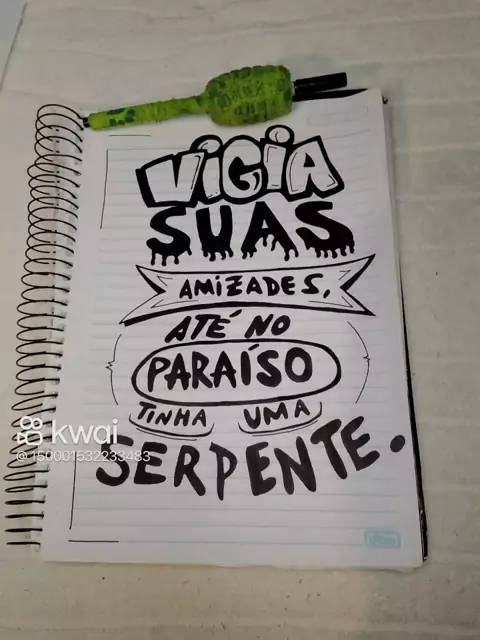 VIGIA
SUAS
AMIZADES,
ATÉ NO
PARAÍSO
TINHA UMA
SERPENTE.
kwai
@150001532233483